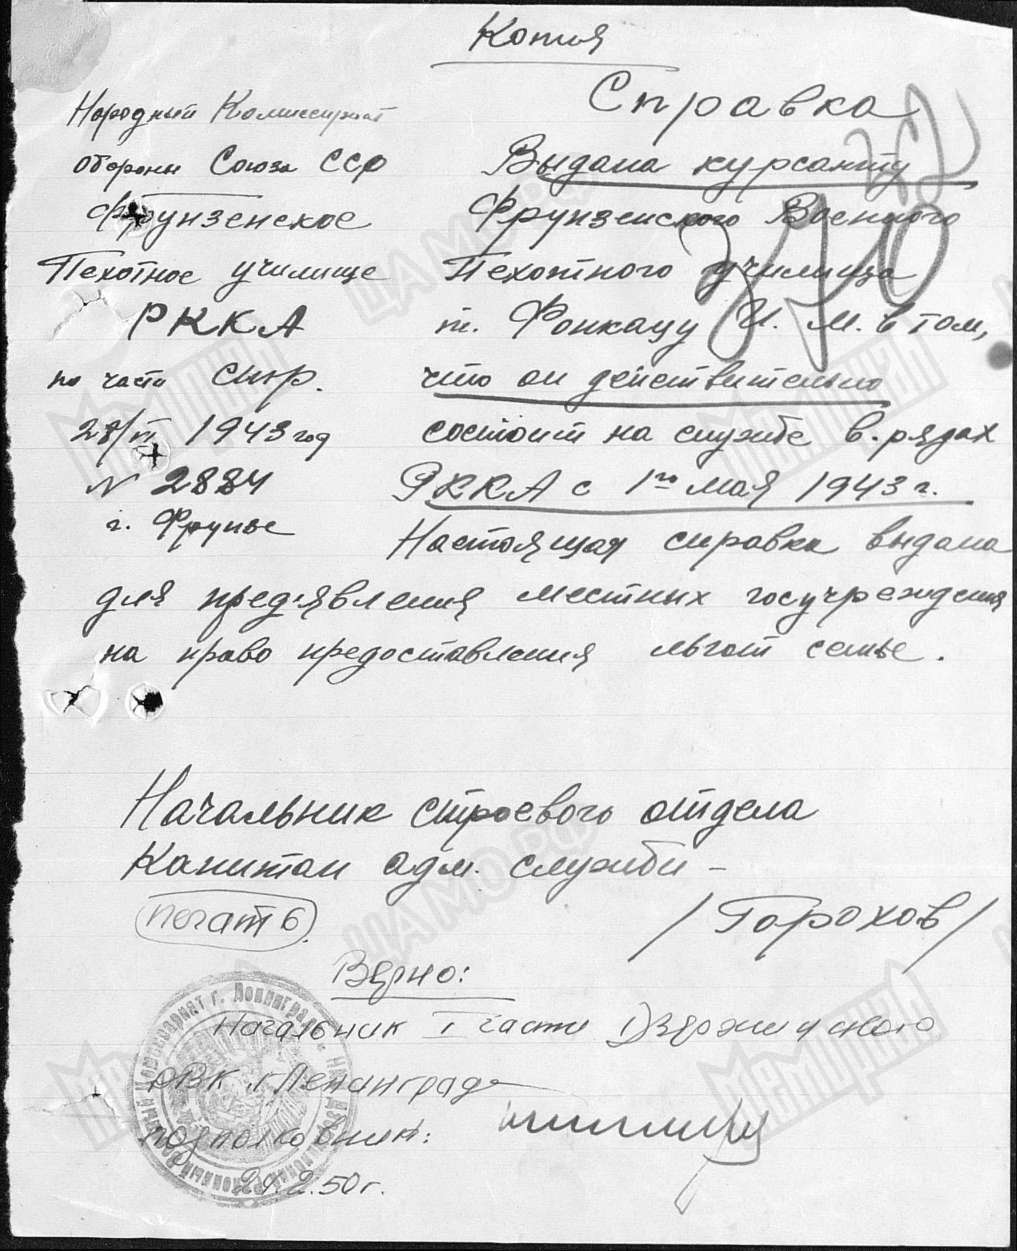 Копия
Справка
Народный Комиссариат
обороны Союза ССР
Фрунзенское
Пехотное училище
РККА
по части стр.
28/VI 1943 год
N 2884
г. Фрунзе
Выдана курсанту
Фрунзенского Военного
Пехотного училища
т. Фонкацу И. М. в том,
что он действительно
состоит на службе в рядах
РККА с 1го мая 1943 г.
Настоящая справка выдана
для пред'явления местных госучреждения
на право предоставления льгот семье.
Начальник строевого отдела
Капитан адм. службы -
/Горохов/
печать
Верно:
Начальник I части Дзержинского
РВК г. Ленинграда
подполковник:
2.50 г.
270
ЦАМО РФ
Мемориал
ЦАМО РФ
Мемориал